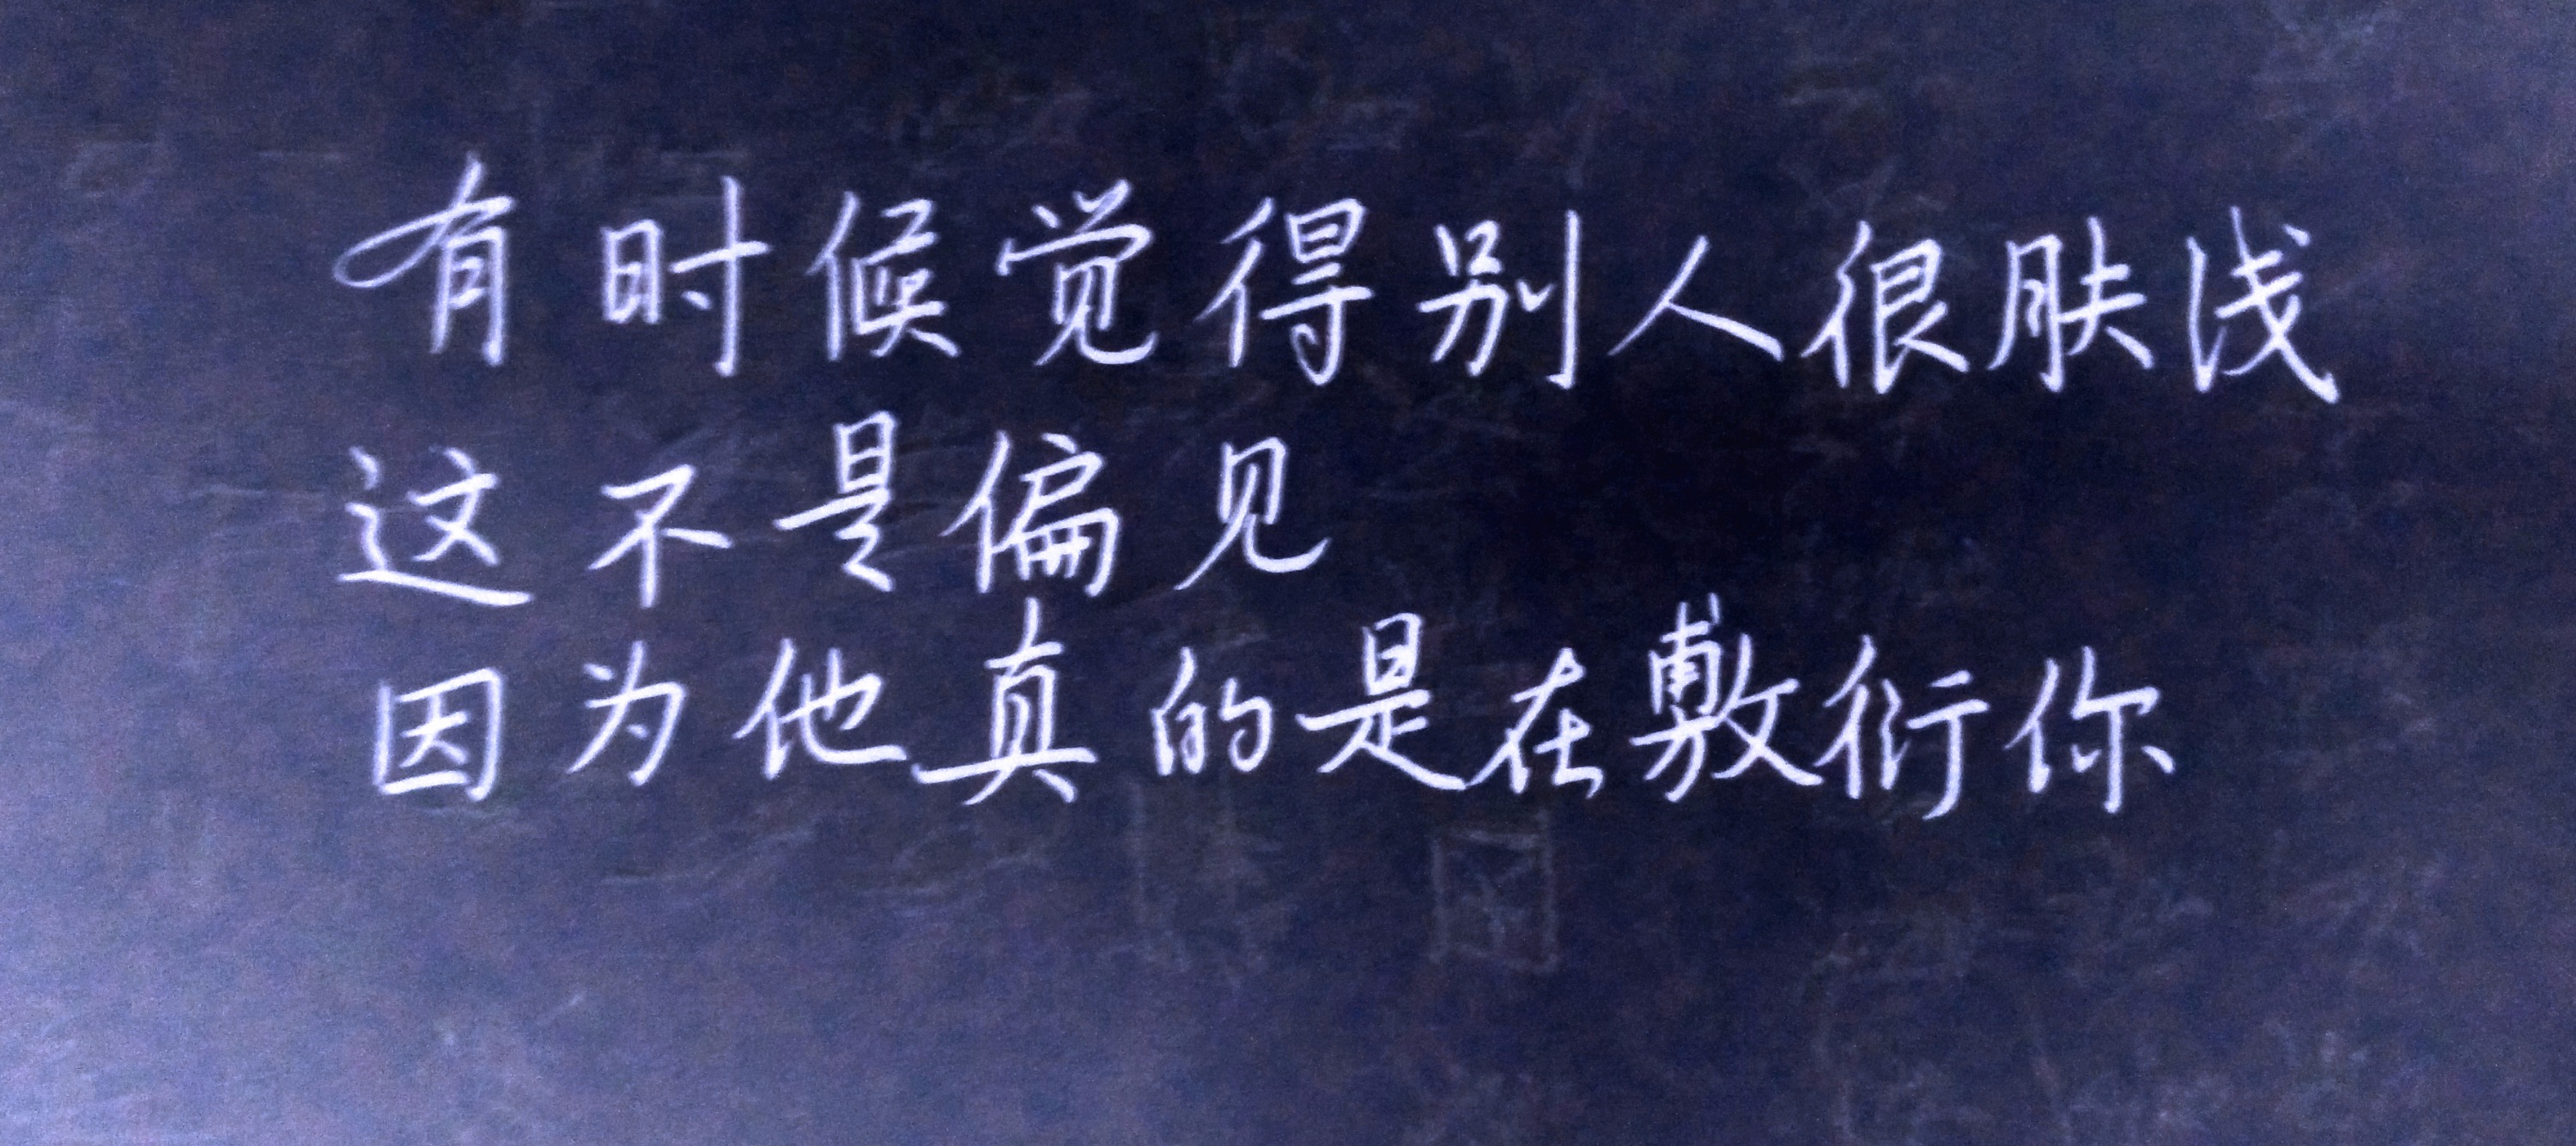 有时候觉得别人很肤浅
这不是偏见
因为他真的是在敷衍你